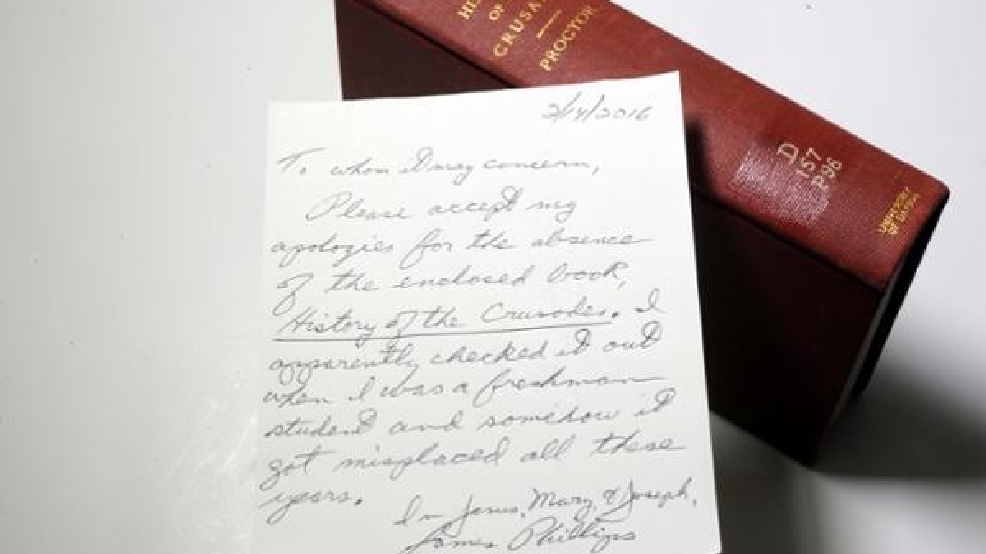 HIS
OF
CRUSA
PROCTOR
D
157
P96
UNIVERSITY
OF DAYTON
2/14/2016
To whom it may concern,
Please accept my
apologies for the absence
of the enclosed book,
History of the Crusades. I
apparently checked it out
when I was a freshman
student and somehow it
got misplaced all these
years.
In Jesus, Mary, & Joseph,
James Phillips